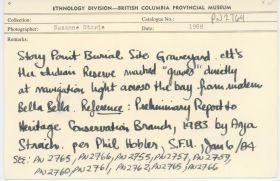 ETHNOLOGY DIVISION—BRITISH COLUMBIA PROVINCIAL MUSEUM
Collection: Catalogue No.: PN2764
Photographer: Suzanne Storie Date: 1968
Remarks:
Story Point Burial Site Graveyard. It's
the Indian Reserve marked "graves" directly
at navigation light across the bay from modern
Bella Bella. Reference: Preliminary Report to
Heritage Conservation Branch, 1983 by Anja
Streich. per Phil Hobler, S.F.U. Jan 6/84
SEE: PN2765, PN2766, PN2755, PN2757, PN2759,
PN2760, PN2761, PN2762, PN2765, PN2766